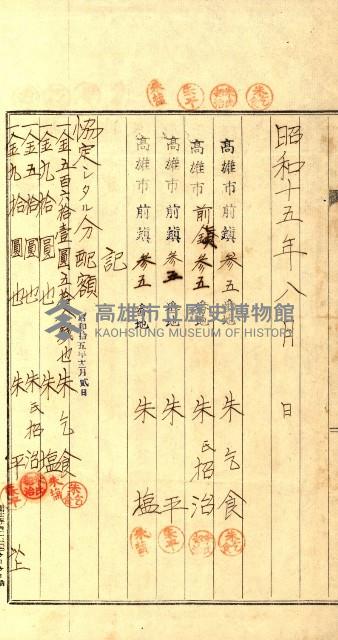 昭和十五年八月　日
高雄市前鎮参五番地　朱乞食
高雄市前鎮参五番地　朱氏招治
高雄市前鎮参五番地　朱平
高雄市前鎮参五番地　朱塩
記
協定シタル分配額
昭和拾五年 月貳日
一金五百六拾壹圓五拾 也　朱乞食
一金九拾圓也　朱塩
一金五拾圓也　朱氏招治
一金九拾圓也　朱平
高雄市立歷史博物館
KAOHSIUNG MUSEUM OF HISTORY